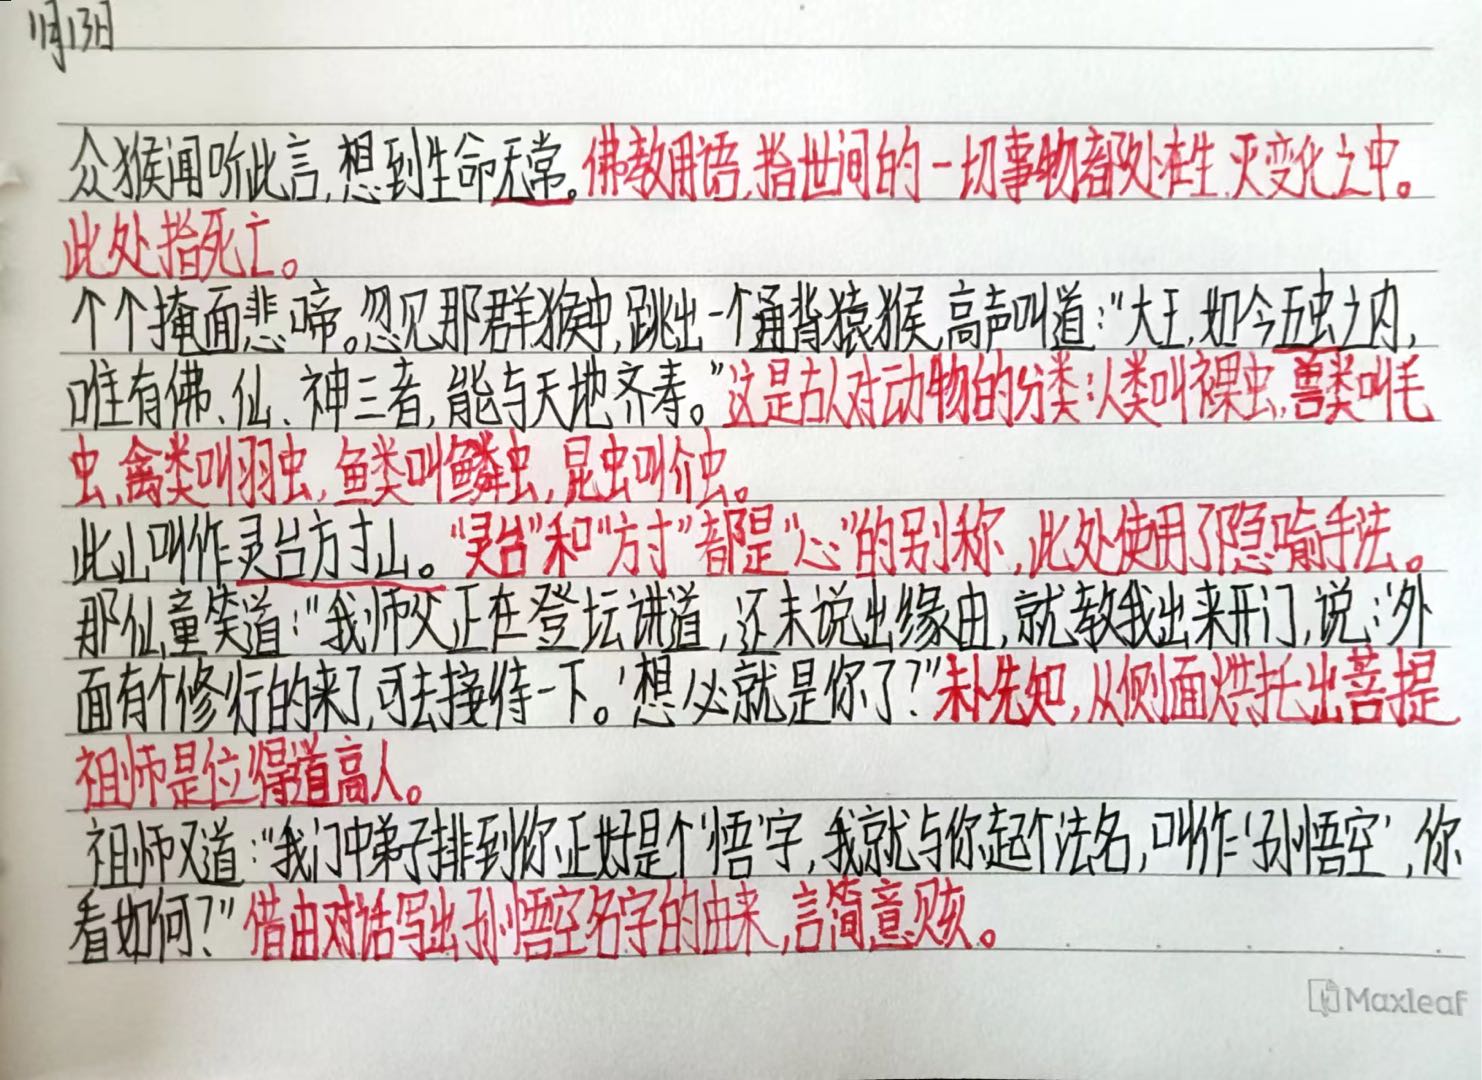 11月13日
众猴闻听此言,想到生命无常。佛教用语,指世间的一切事物都处在生、灭变化之中。
此处指死亡。
个个掩面悲啼。忽见那群猴中,跳出一个通背猿猴,高声叫道:"大王,如今五虫之内,
唯有佛、仙、神三者,能与天地齐寿。"这是古人对动物的分类:人类叫裸虫,兽类叫毛
虫,禽类叫羽虫,鱼类叫鳞虫,昆虫叫介虫。
此山叫作灵台方寸山。"灵台"和"方寸"都是"心"的别称,此处使用了隐喻手法。
那仙童笑道:"我师父正在登坛讲道,还未说出缘由,就教我出来开门,说:'外
面有个修行的来了,可去接待一下。'想必就是你了?"未卜先知,从侧面烘托出菩提
祖师是位得道高人。
祖师又道:"我门中弟子排到你正好是个'悟'字,我就与你起个法名,叫作'孙悟空',你
看如何?"借由对话写出孙悟空名字的由来,言简意赅。
Maxleaf